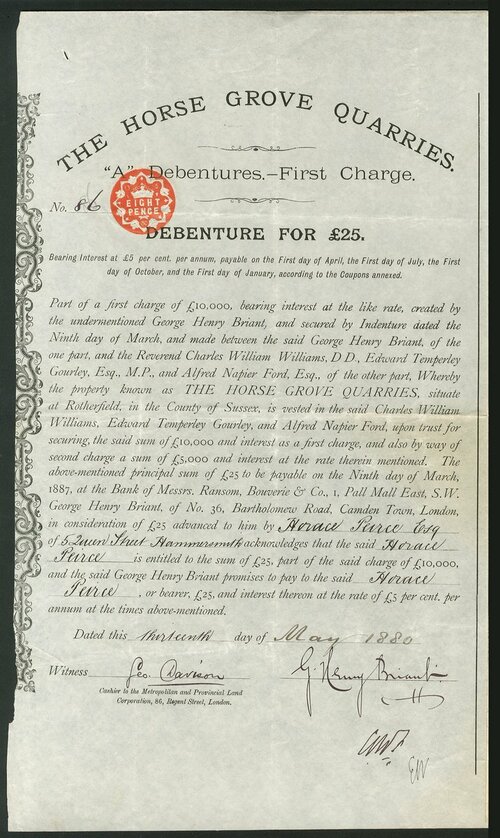 THE HORSE GROVE QUARRIES.
"A" Debentures.—First Charge.
No. 86
EIGHT
PENCE
DEBENTURE FOR £25.
Bearing Interest at £5 per cent. per annum, payable on the First day of April, the First day of July, the First
day of October, and the First day of January, according to the Coupons annexed.
Part of a first charge of £10,000, bearing interest at the like rate, created by
the undermentioned George Henry Briant, and secured by Indenture dated the
Ninth day of March, and made between the said George Henry Briant, of the
one part, and the Reverend Charles William Williams, D.D., Edward Temperley
Gourley, Esq., M.P., and Alfred Napier Ford, Esq., of the other part, Whereby
the property known as THE HORSE GROVE QUARRIES, situate
at Rotherfield, in the County of Sussex, is vested in the said Charles William
Williams, Edward Temperley Gourley, and Alfred Napier Ford, upon trust for
securing, the said sum of £10,000 and interest as a first charge, and also by way of
second charge a sum of £5,000 and interest at the rate therein mentioned. The
above-mentioned principal sum of £25 to be payable on the Ninth day of March,
1887, at the Bank of Messrs. Ransom, Bouverie & Co., 1, Pall Mall East, S.W.
George Henry Briant, of No. 36, Bartholomew Road, Camden Town, London,
in consideration of £25 advanced to him by Horace Pearce Esq
of 5 Queen Street Hammersmith acknowledges that the said Horace
Pearce is entitled to the sum of £25, part of the said charge of £10,000,
and the said George Henry Briant promises to pay to the said Horace
Pearce, or bearer, £25, and interest thereon at the rate of £5 per cent. per
annum at the times above-mentioned.
Dated this thirteenth day of May 1880
Witness Geo. Davison G. Henry Briant
Cashier to the Metropolitan and Provincial Land
Corporation, 86, Regent Street, London.